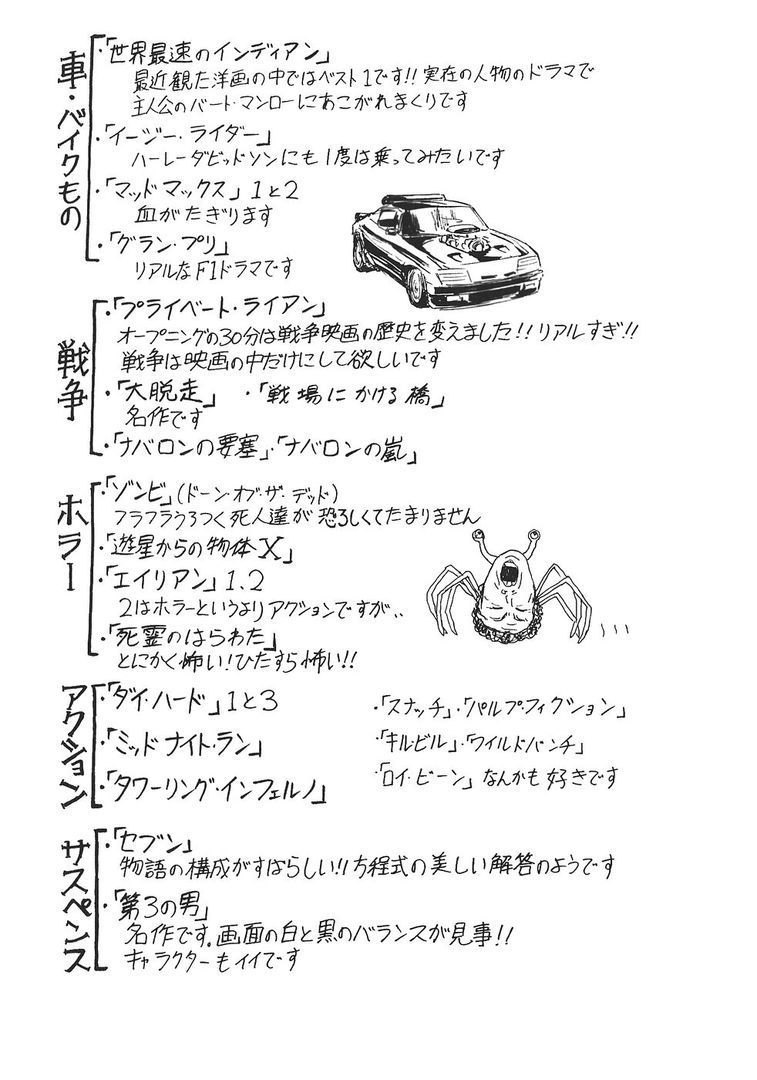 車・バイクもの
・「世界最速のインディアン」
最近観た洋画の中ではベスト1です!!実在の人物のドラマで
主人公のバート・マンローにあこがれまくりです
・「イージー・ライダー」
ハーレーダビッドソンにも1度は乗ってみたいです
・「マッドマックス」1と2
血がたぎります
・「グラン・プリ」
リアルなF1ドラマです
戦争
・「プライベート・ライアン」
オープニングの30分は戦争映画の歴史を変えました!!リアルすぎ!!
戦争は映画の中だけにして欲しいです
・「大脱走」 ・「戦場にかける橋」
名作です
・「ナバロンの要塞」・「ナバロンの嵐」
ホラー
・「ゾンビ」(ドーン・オブ・ザ・デッド)
フラフラうろつく死人達が恐ろしくてたまりません
・「遊星からの物体X」
・「エイリアン」1.2
2はホラーというよりアクションですが..
・「死霊のはらわた」
とにかく怖い!ひたすら怖い!!
アクション
・「ダイ・ハード」1と3
・「ミッドナイト・ラン」
・「タワーリング・インフェルノ」
・「スナッチ」・「パルプ・フィクション」
・「キルビル」・「ワイルドバンチ」
・「ロイ・ビーン」なんかも好きです
サスペンス
・「セブン」
物語の構成がすばらしい!!方程式の美しい解答のようです
・「第3の男」
名作です.画面の白と黒のバランスが見事!!
キャラクターもイイです